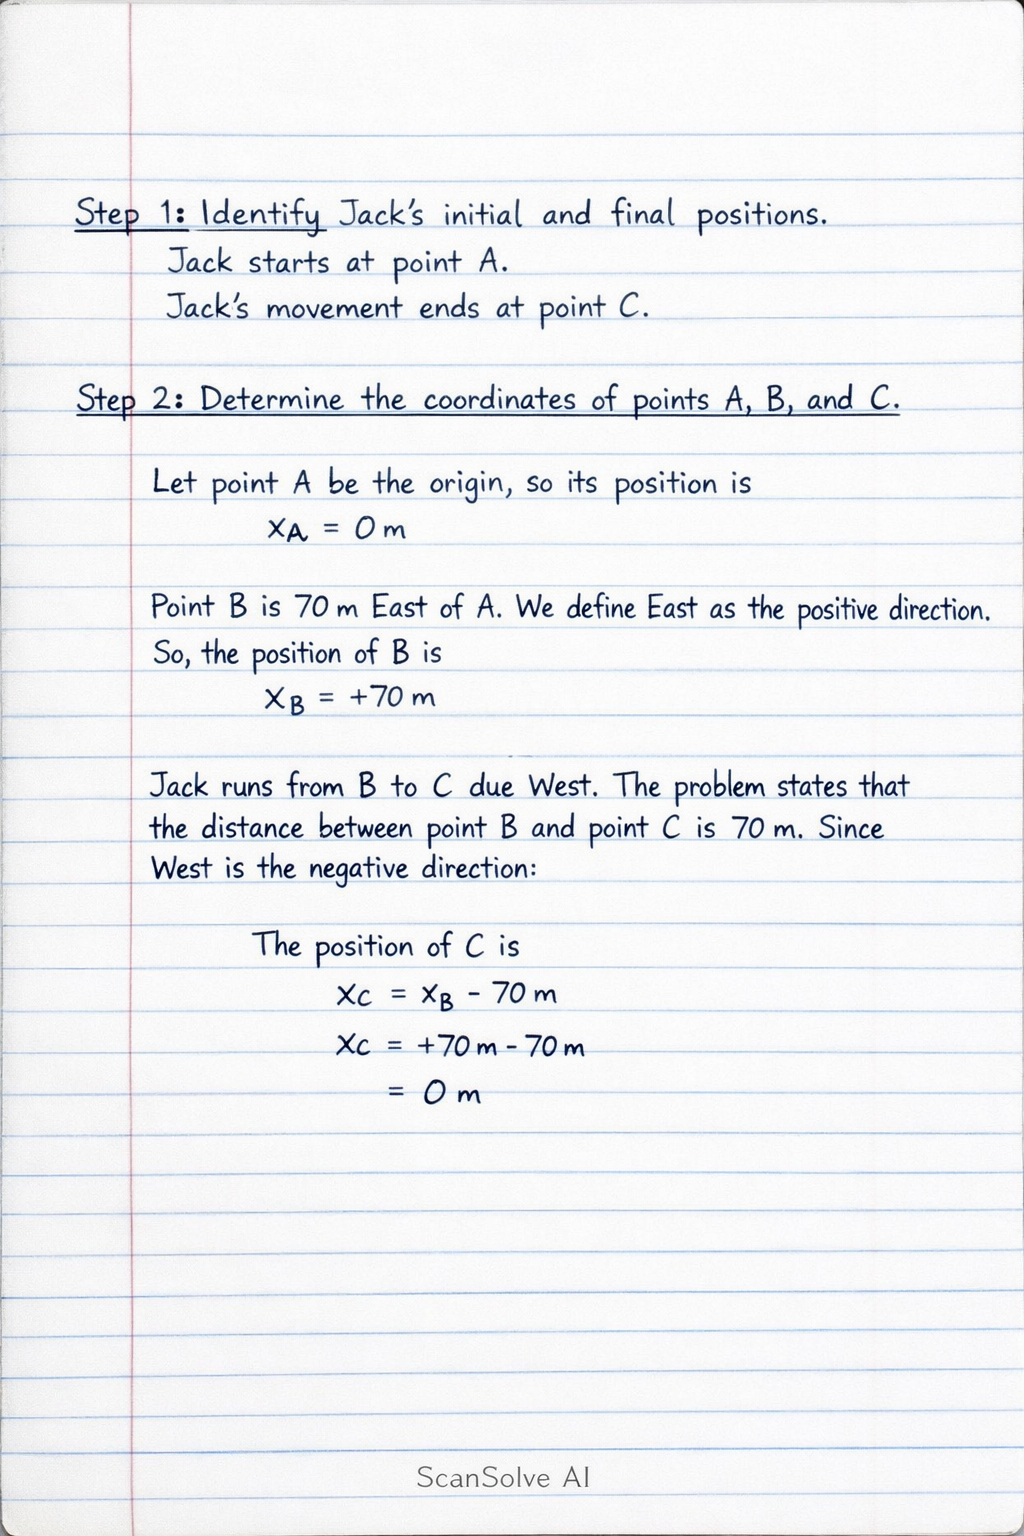 Step 1: Identify Jack's initial and final positions.
Jack starts at point A.
Jack's movement ends at point C.
Step 2: Determine the coordinates of points A, B, and C.
Let point A be the origin, so its position is
xA = 0 m
Point B is 70 m East of A. We define East as the positive direction.
So, the position of B is
xB = +70 m
Jack runs from B to C due West. The problem states that
the distance between point B and point C is 70 m. Since
West is the negative direction:
The position of C is
xC = xB - 70 m
xC = +70 m - 70 m
= 0 m
ScanSolve AI